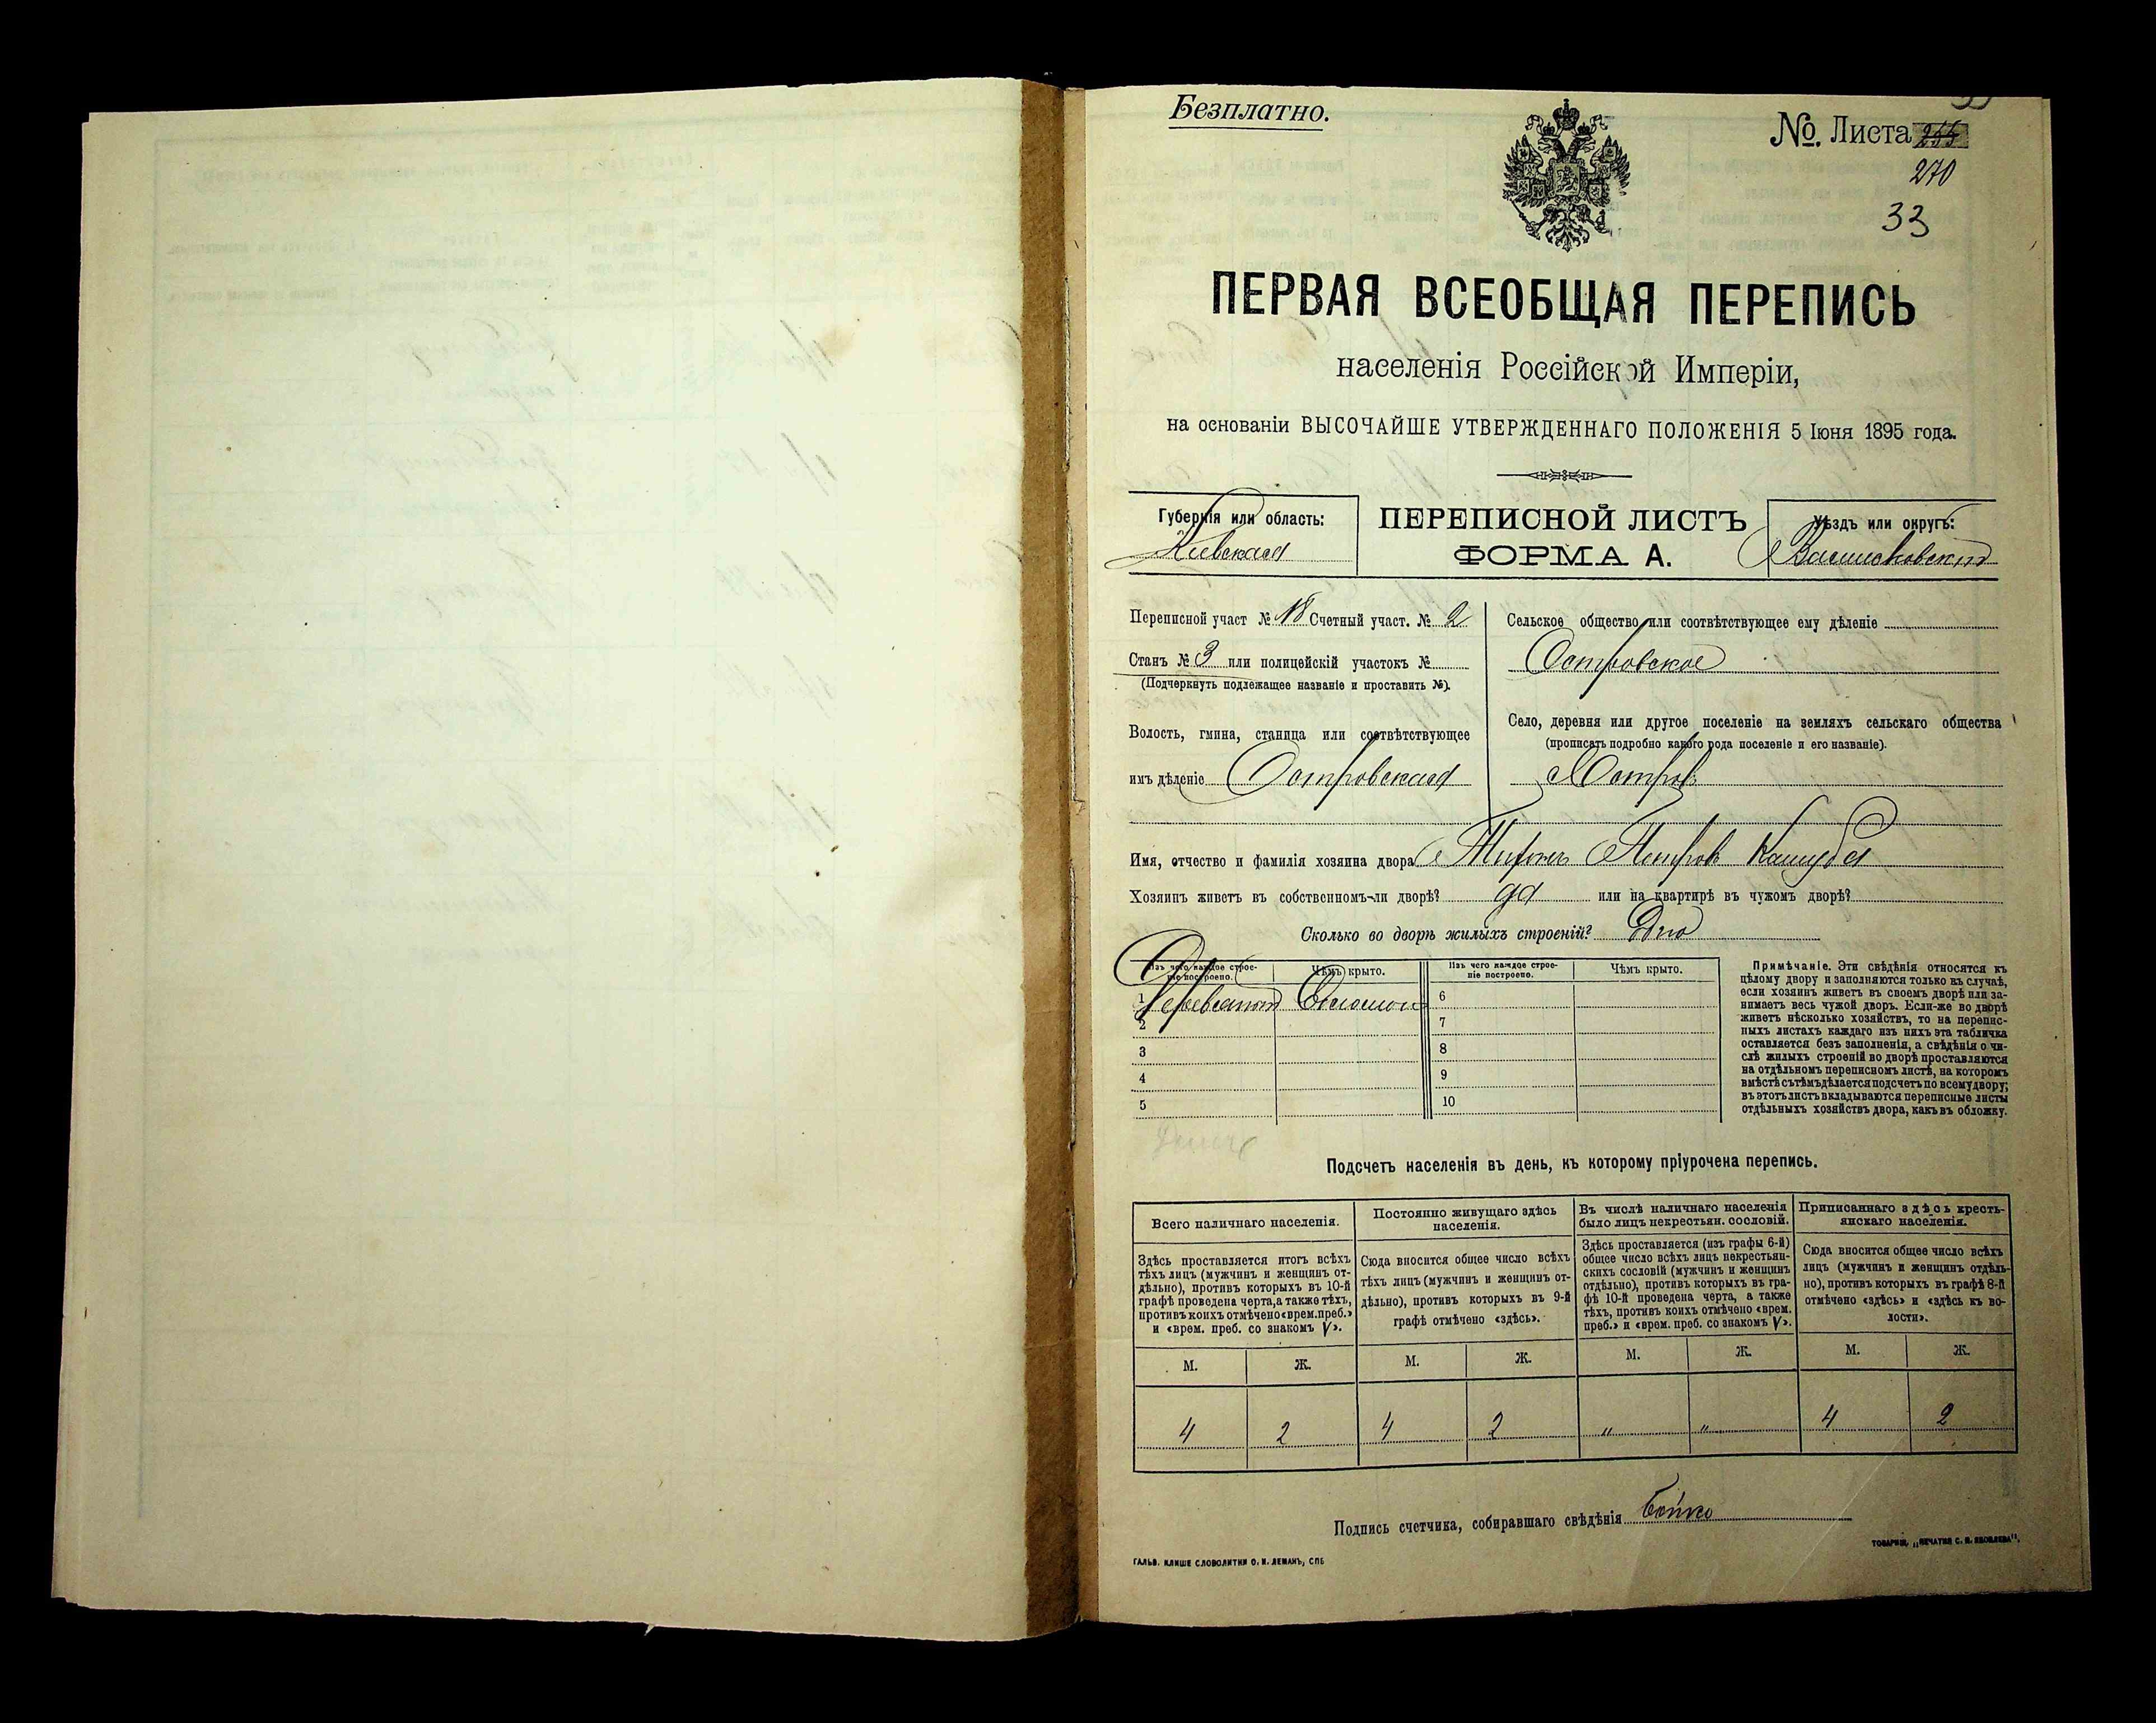 Безплатно.
№. Листа 255
270
33
ПЕРВАЯ ВСЕОБЩАЯ ПЕРЕПИСЬ
населенія Россійской Имперіи,
на основаніи ВЫСОЧАЙШЕ УТВЕРЖДЕННАГО ПОЛОЖЕНІЯ 5 Іюня 1895 года.
Губернія или область:
Кіевская
ПЕРЕПИСНОЙ ЛИСТЪ
ФОРМА А.
Уѣздъ или округъ:
Васильковскій
Переписной участ № 18 Счетный участ. № 2
Станъ № 3 или полицейскій участокъ №
(Подчеркнуть подлежащее названіе и проставить №).
Волость, гмина, станица или соотвѣтствующее
имъ дѣленіе Островская
Сельское общество или соотвѣтствующее ему дѣленіе
Островское
Село, деревня или другое поселеніе на земляхъ сельскаго общества
(прописать подробно какого рода поселеніе и его названіе).
Островъ
Имя, отчество и фамилія хозяина двора Петров Кашуба
Хозяинъ живетъ въ собственномъ-ли дворѣ? да или на квартирѣ въ чужомъ дворѣ?
Сколько во дворѣ жилыхъ строеній? Одно
Изъ чего каждое строе-
ніе построено.
Чѣмъ крыто.
Изъ чего каждое строе-
ніе построено.
Чѣмъ крыто.
1 Деревянное Соломою
2
3
4
5
6
7
8
9
10
Примѣчаніе. Эти свѣдѣнія относятся къ
цѣлому двору и заполняются только въ случаѣ,
если хозяинъ живетъ въ своемъ дворѣ или за-
нимаетъ весь чужой дворъ. Если-же во дворѣ
живетъ нѣсколько хозяйствъ, то на перепис-
ныхъ листахъ каждаго изъ нихъ эта табличка
оставляется безъ заполненія, а свѣдѣнія о чи-
слѣ жилыхъ строеній во дворѣ проставляются
на отдѣльномъ переписномъ листѣ, на которомъ
вмѣстѣ съ тѣмъ дѣлается подсчетъ по всему двору;
въ этотъ листъ вкладываются переписные листы
отдѣльныхъ хозяйствъ двора, какъ въ обложку.
Подсчетъ населенія въ день, къ которому пріурочена перепись.
Всего наличнаго населенія.
Здѣсь проставляется итогъ всѣхъ
тѣхъ лицъ (мужчинъ и женщинъ от-
дѣльно), противъ которыхъ въ 10-й
графѣ проведена черта, а также тѣхъ,
противъ коихъ отмѣчено «врем. преб.»
и «врем. преб. со знакомъ V».
Постоянно живущаго здѣсь
населенія.
Сюда вносится общее число всѣхъ
тѣхъ лицъ (мужчинъ и женщинъ от-
дѣльно), противъ которыхъ въ 9-й
графѣ отмѣчено «здѣсь».
Въ числѣ наличнаго населенія
было лицъ некрестьян. сословій.
Здѣсь проставляется (изъ графы 6-й)
общее число всѣхъ лицъ некрестьян-
скихъ сословій (мужчинъ и женщинъ
отдѣльно), противъ которыхъ въ гра-
фѣ 10-й проведена черта, а также
тѣхъ, противъ коихъ отмѣчено «врем.
преб.» и «врем. преб. со знакомъ V».
Приписаннаго здѣсь кресть-
янскаго населенія.
Сюда вносится общее число всѣхъ
лицъ (мужчинъ и женщинъ отдѣль-
но), противъ которыхъ въ графѣ 8-й
отмѣчено «здѣсь» и «здѣсь къ во-
лости».
М. Ж. М. Ж. М. Ж. М. Ж.
4 2 4 2 „ „ 4 2
Подпись счетчика, собиравшаго свѣдѣнія Бойко
ГАЛЬВ. КЛИШЕ СЛОВОЛИТНИ О. И. ЛЕМАНЪ, СПБ
ТОВАРИЩ. „ПЕЧАТНЯ С. П. ЯКОВЛЕВА".